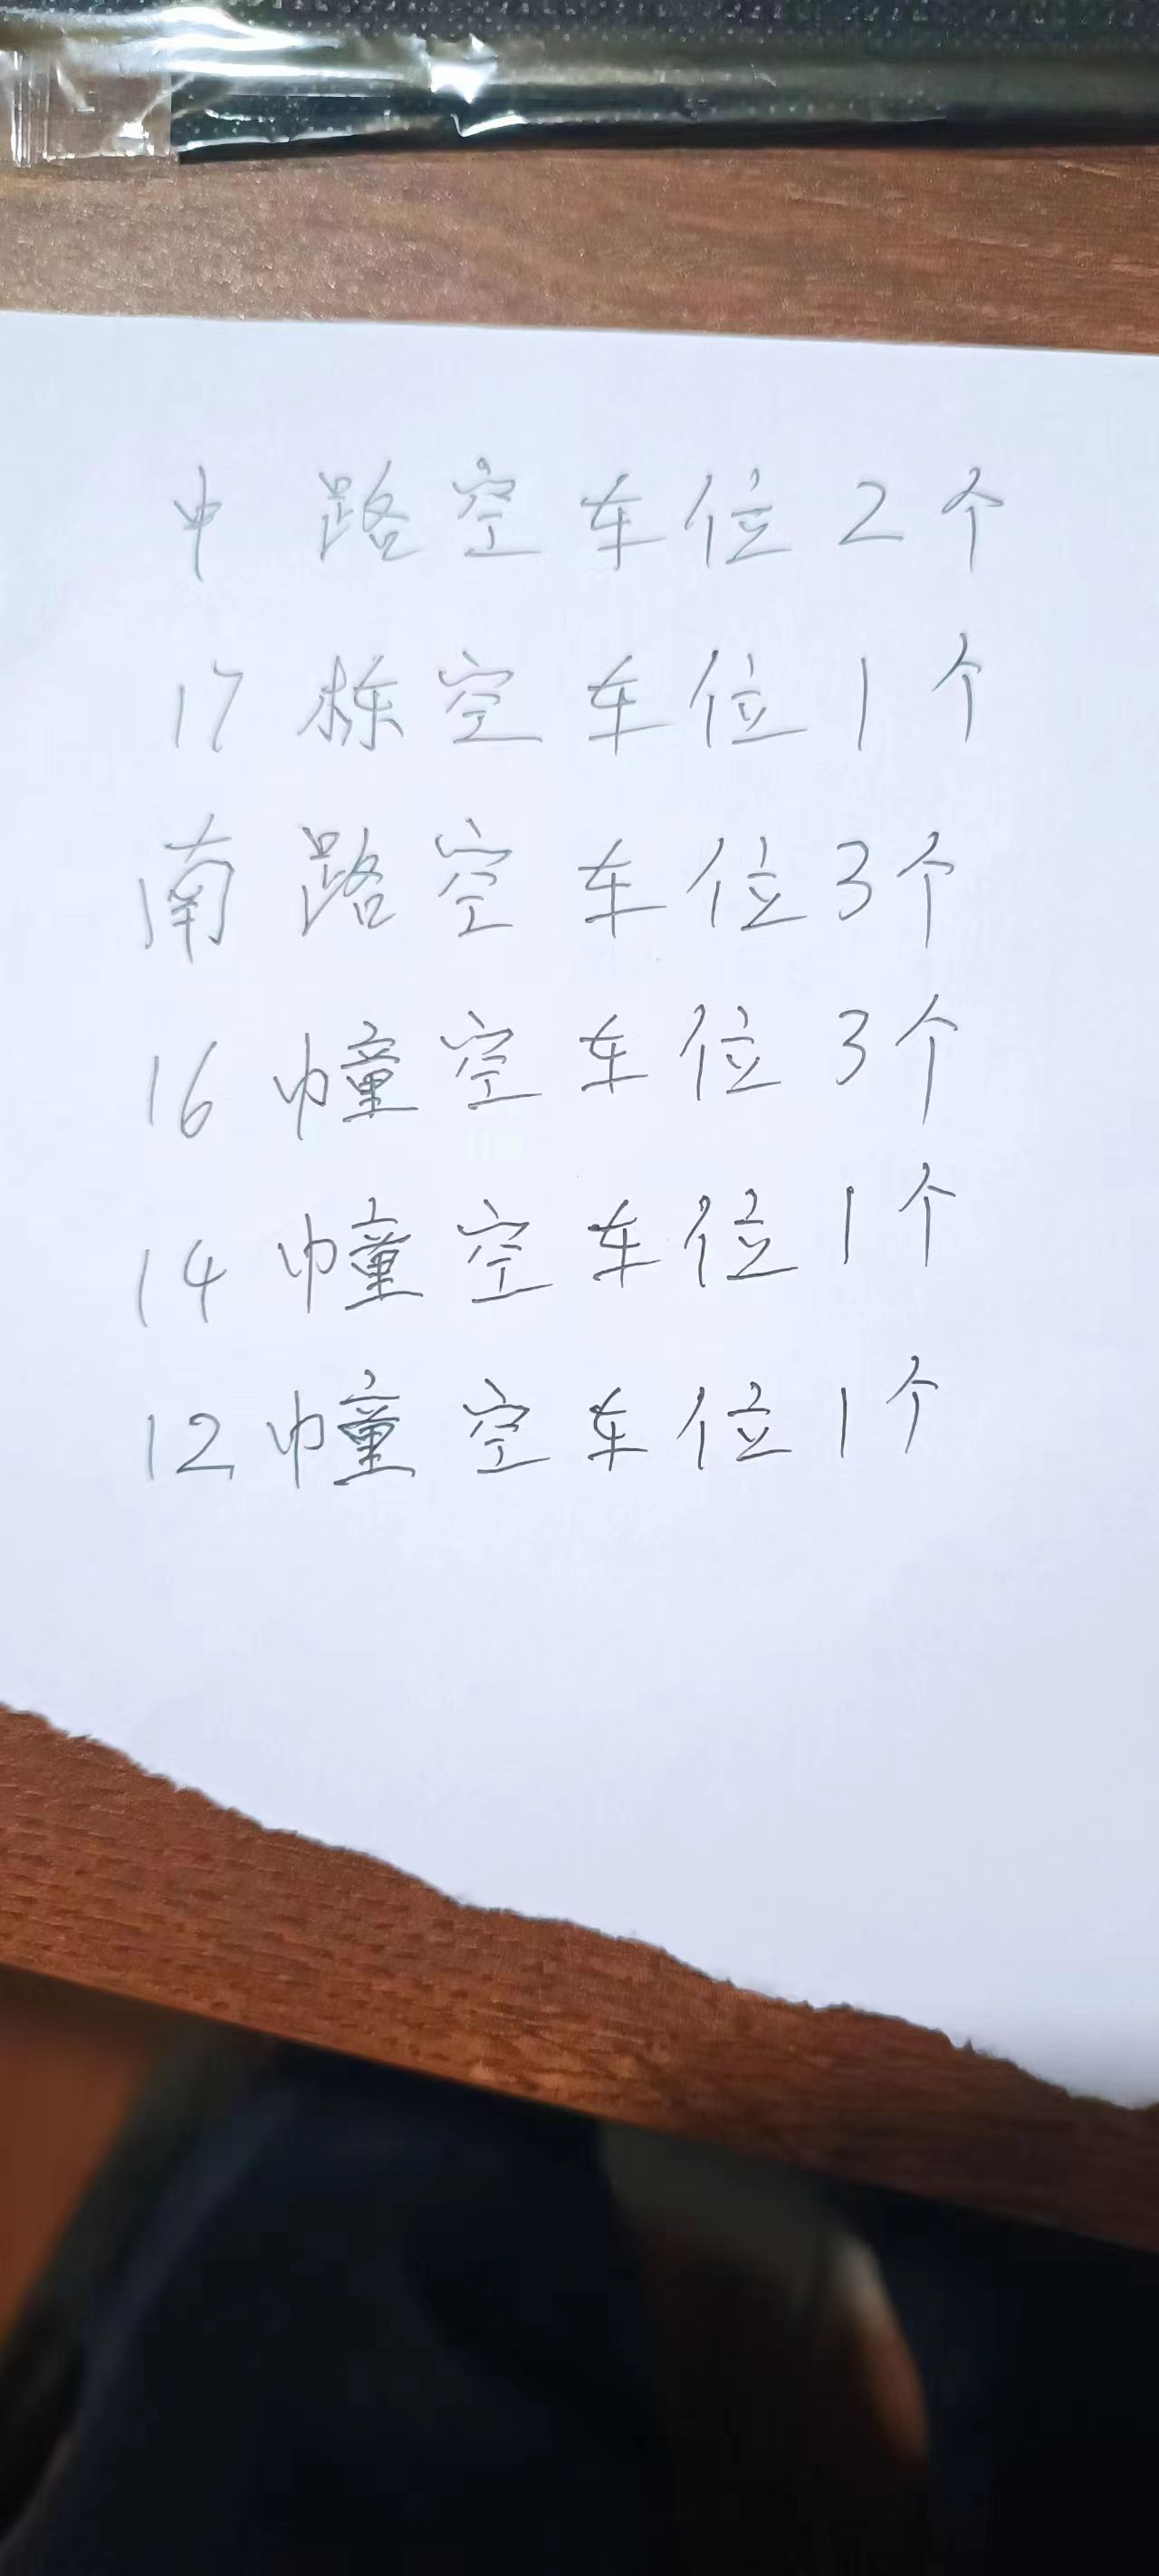 中路空车位2个
17栋空车位1个
南路空车位3个
16幢空车位3个
14幢空车位1个
12幢空车位1个